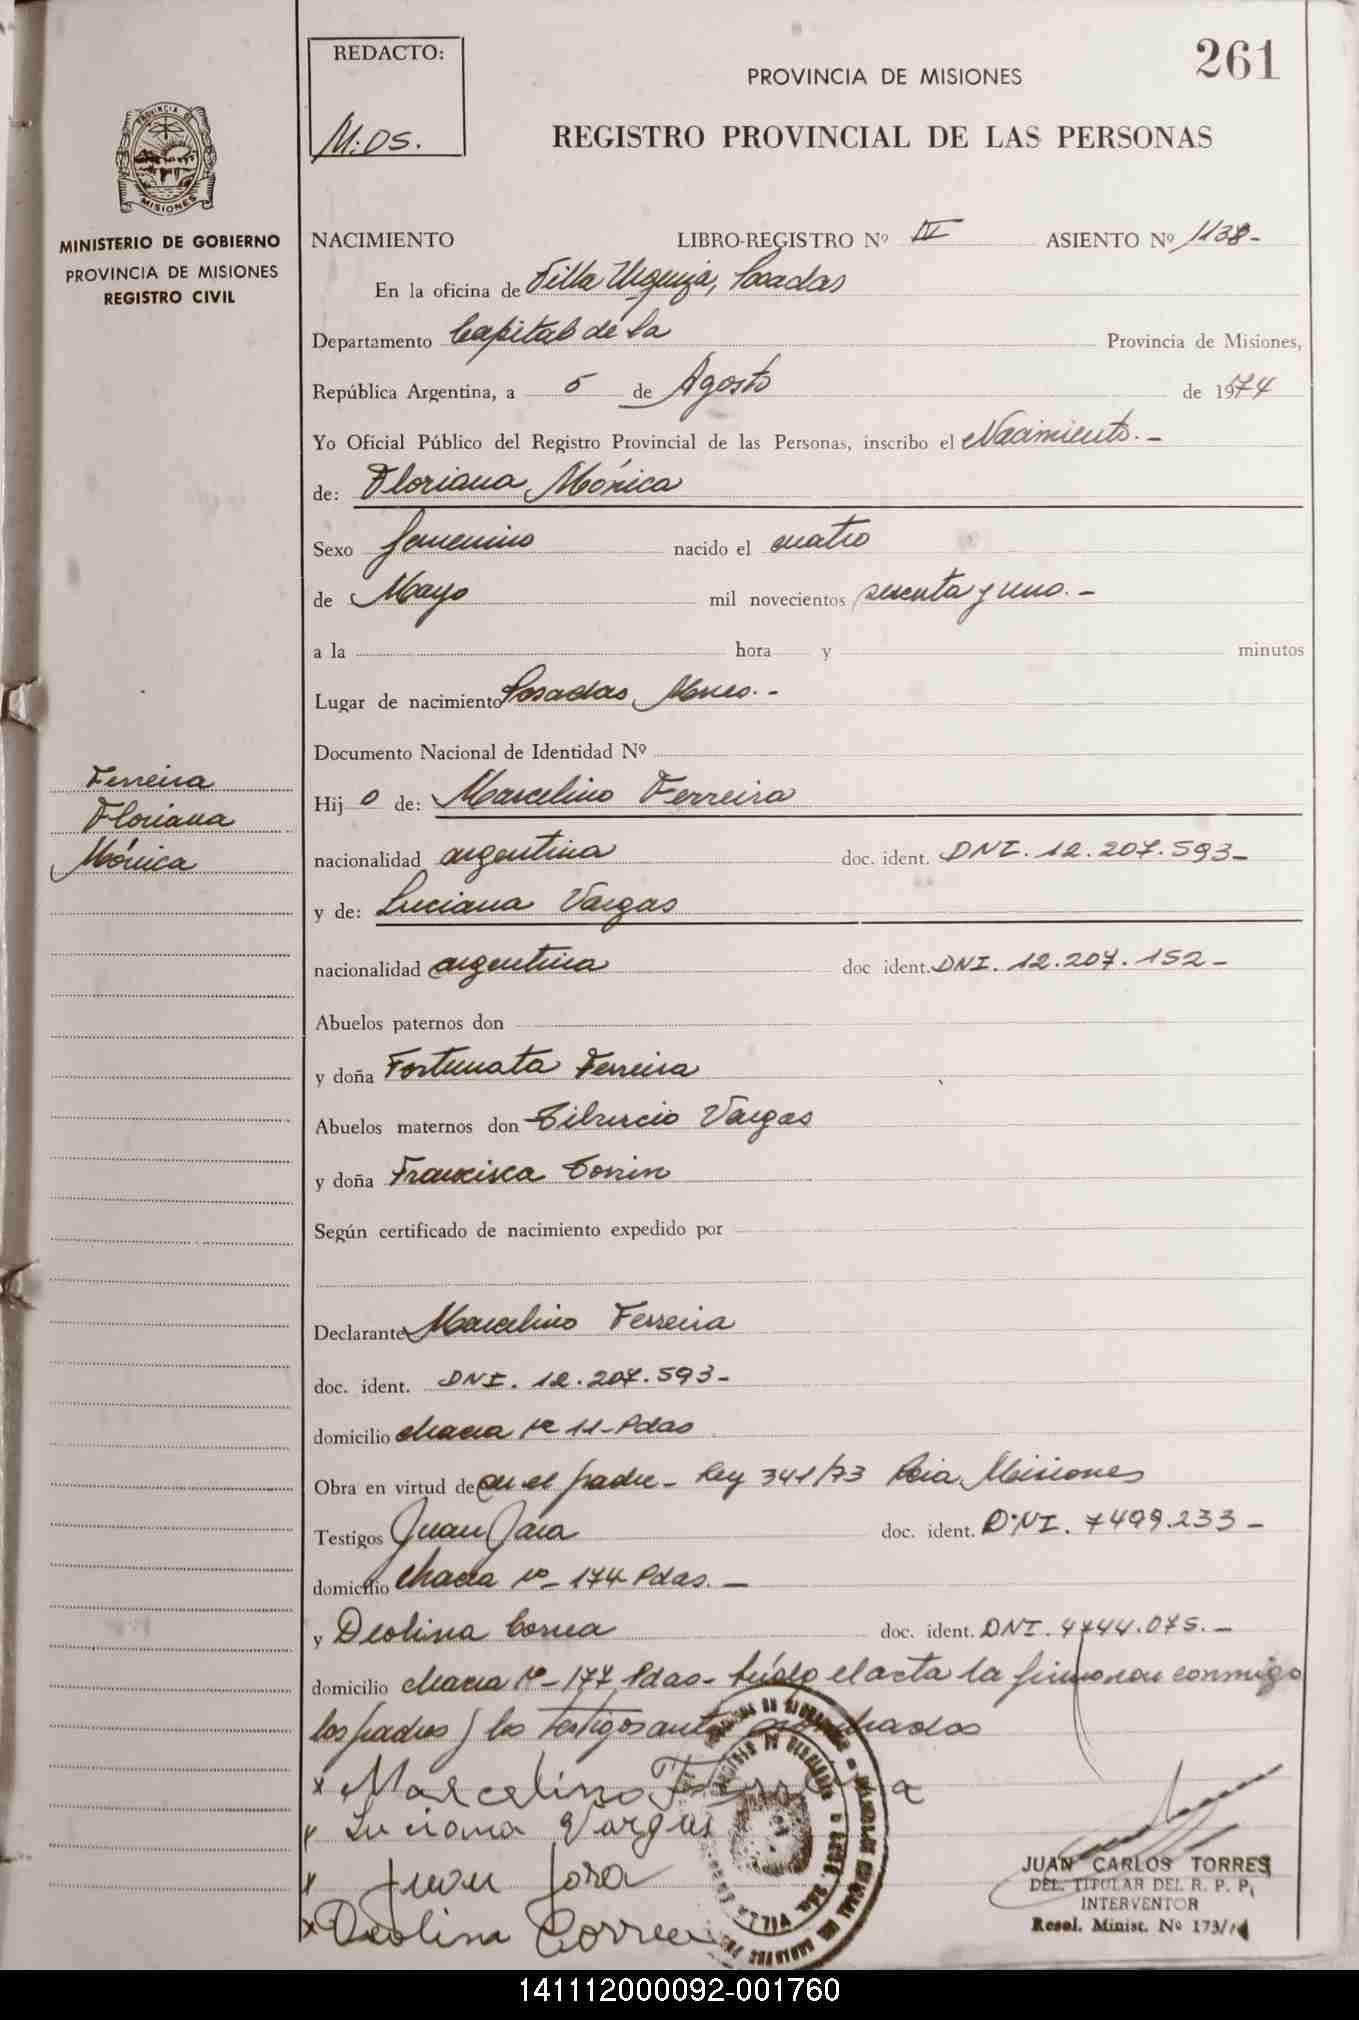 261
REDACTO:
M.DS.
PROVINCIA DE MISIONES
REGISTRO PROVINCIAL DE LAS PERSONAS
PROVINCIA DE
MISIONES
MINISTERIO DE GOBIERNO
PROVINCIA DE MISIONES
REGISTRO CIVIL
NACIMIENTO LIBRO-REGISTRO Nº IV ASIENTO Nº 1138-
En la oficina de Villa Urquiza, Posadas
Departamento Capital de la Provincia de Misiones,
República Argentina, a 5 de Agosto de 1974
Yo Oficial Público del Registro Provincial de las Personas, inscribo el Nacimiento.-
de: Floriana Mónica
Sexo femenino nacido el cuatro
de Mayo mil novecientos sesenta y uno.-
a la hora y minutos
Lugar de nacimiento Posadas, Mnes.-
Documento Nacional de Identidad Nº
Ferreira
Floriana
Mónica
Hij o de: Marcelino Ferreira
nacionalidad argentina doc. ident. DNI. 12.207.593-
y de: Luciana Vargas
nacionalidad argentina doc ident. DNI. 12.207.152-
Abuelos paternos don
y doña Fortunata Ferreira
Abuelos maternos don Tiburcio Vargas
y doña Francisca
Según certificado de nacimiento expedido por
Declarante Marcelino Ferreira
doc. ident. DNI. 12.207.593-
domicilio chacra Nº 11-Pdas
Obra en virtud de en el padre- Ley 341/73 Pcia. Misiones
Testigos Juan Jara doc. ident. DNI. 7499.233-
domicilio chacra Nº- 174 Pdas.-
y Deolina Correa doc. ident. DNI. 4744.075.-
domicilio chacra Nº- 177 Pdas- Leída el acta la firmaron conmigo
los padres y los testigos antes nombrados
x Marcelino Ferreira
x Luciana Vargas
x Juan Jara
x Deolina Correa
JUAN CARLOS TORRES
DEL. TITULAR DEL R. P. P.
INTERVENTOR
Resol. Minist. Nº 173/
141112000092-001760